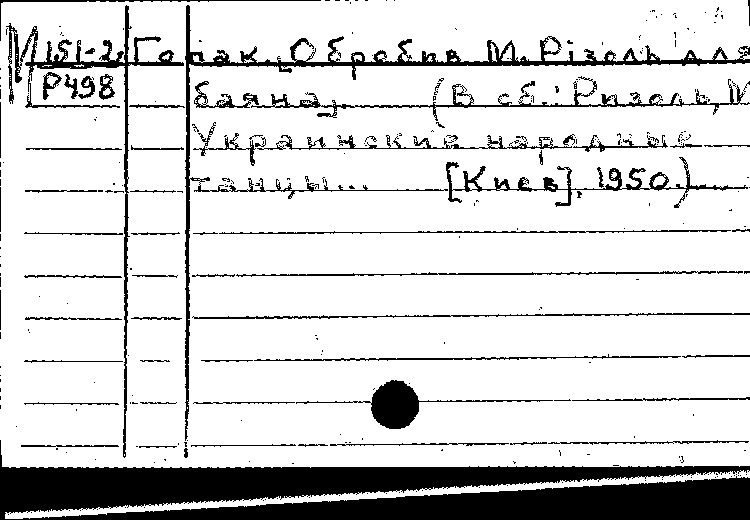 М 151-2 Гопак. [Обробив М. Різоль для
Р498 баяна]. (В сб.: Ризоль, М
Украинские народные
танцы... [Киев], 1950.)